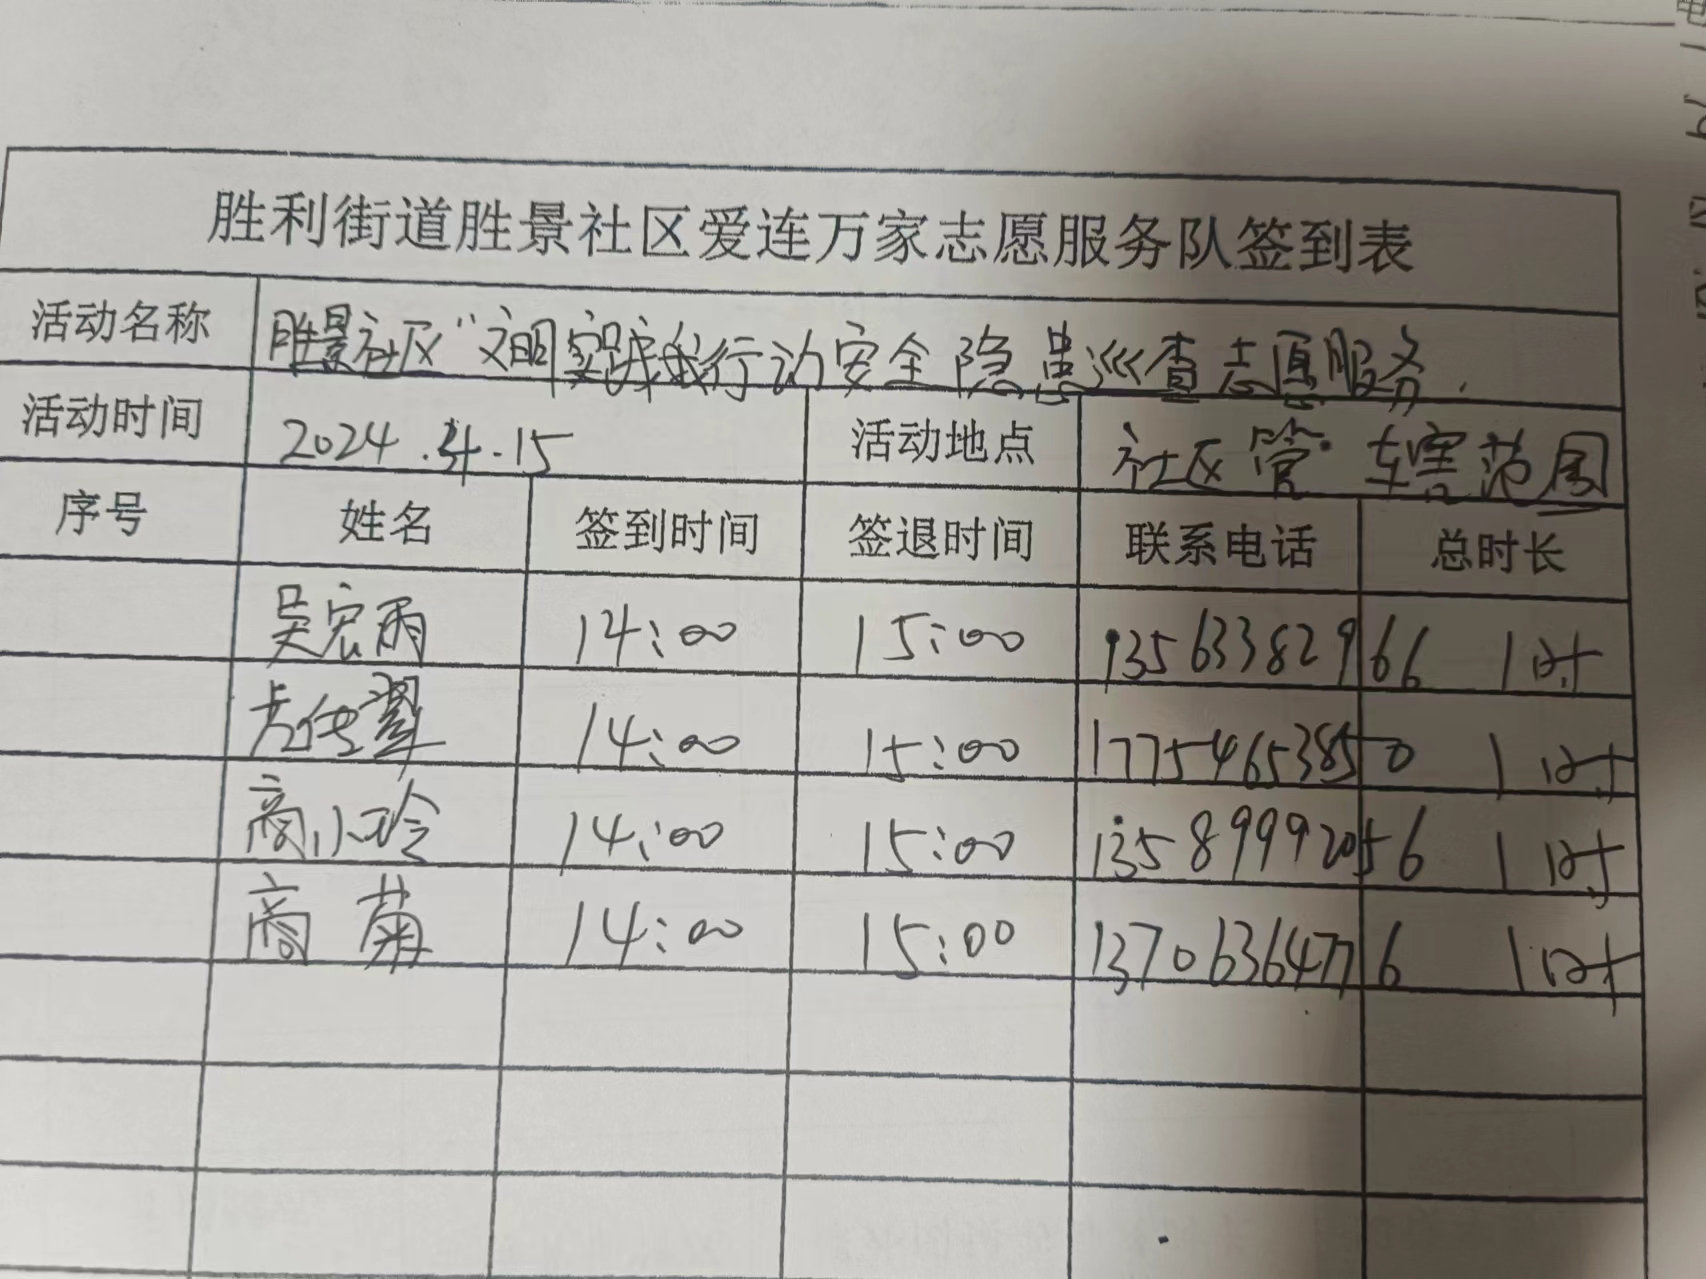 胜利街道胜景社区爱连万家志愿服务队签到表
活动名称 胜景社区“文明实践我行动安全隐患巡查志愿服务.
活动时间 2024.4.15 活动地点 社区管辖范围
序号 姓名 签到时间 签退时间 联系电话 总时长
吴宏雨 14:00 15:00 13563382966 1时
14:00 15:00 17754653850 1时
商小玲 14:00 15:00 13589992056 1时
商菊 14:00 15:00 13706364776 1时